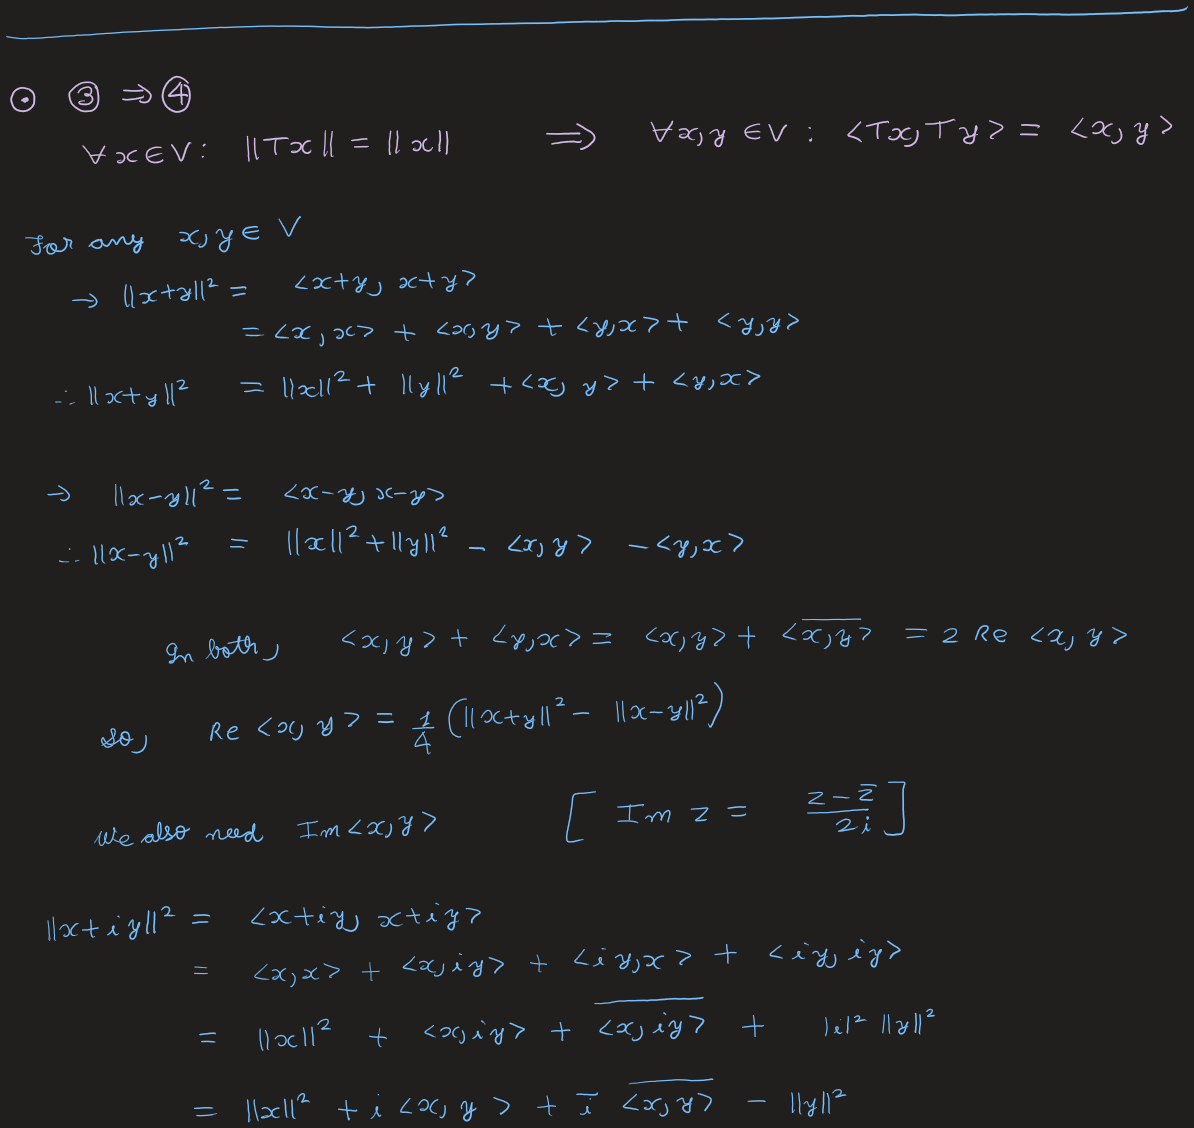 ⊙ ③ ⇒ ④
∀x∈V: ||Tx|| = ||x|| ⟹ ∀x,y ∈V : <Tx,Ty> = <x,y>
For any x,y ∈ V
→ ||x+y||² = <x+y, x+y>
= <x,x> + <x,y> + <y,x> + <y,y>
∴ ||x+y||² = ||x||² + ||y||² + <x,y> + <y,x>
→ ||x-y||² = <x-y, x-y>
∴ ||x-y||² = ||x||² + ||y||² - <x,y> - <y,x>
In both, <x,y> + <y,x> = <x,y> + <x̅,̅y̅> = 2 Re <x,y>
So, Re <x,y> = 1/4 (||x+y||² - ||x-y||²)
We also need Im<x,y> [ Im z = (z - z̅)/2i ]
||x+iy||² = <x+iy, x+iy>
= <x,x> + <x,iy> + <iy,x> + <iy,iy>
= ||x||² + <x,iy> + \overline{<x,iy>} + |i|² ||y||²
= ||x||² + i <x,y> + i̅ \overline{<x,y>} - ||y||²